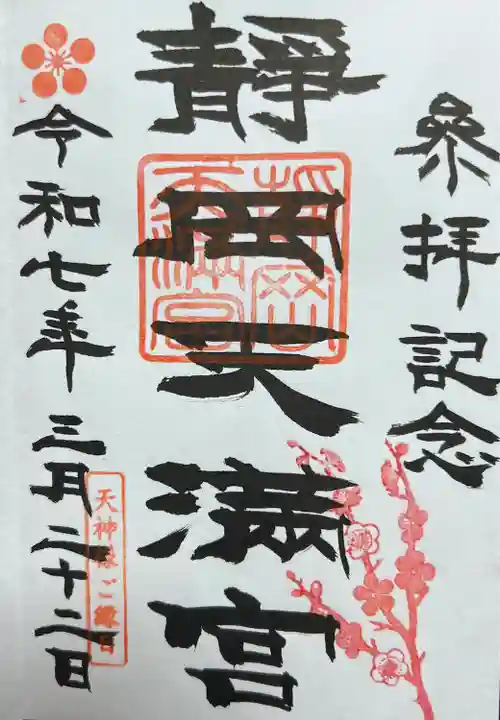 參拜記念
靜岡天滿宮
静岡天満宮
令和七年三月二十二日
天神様ご縁日